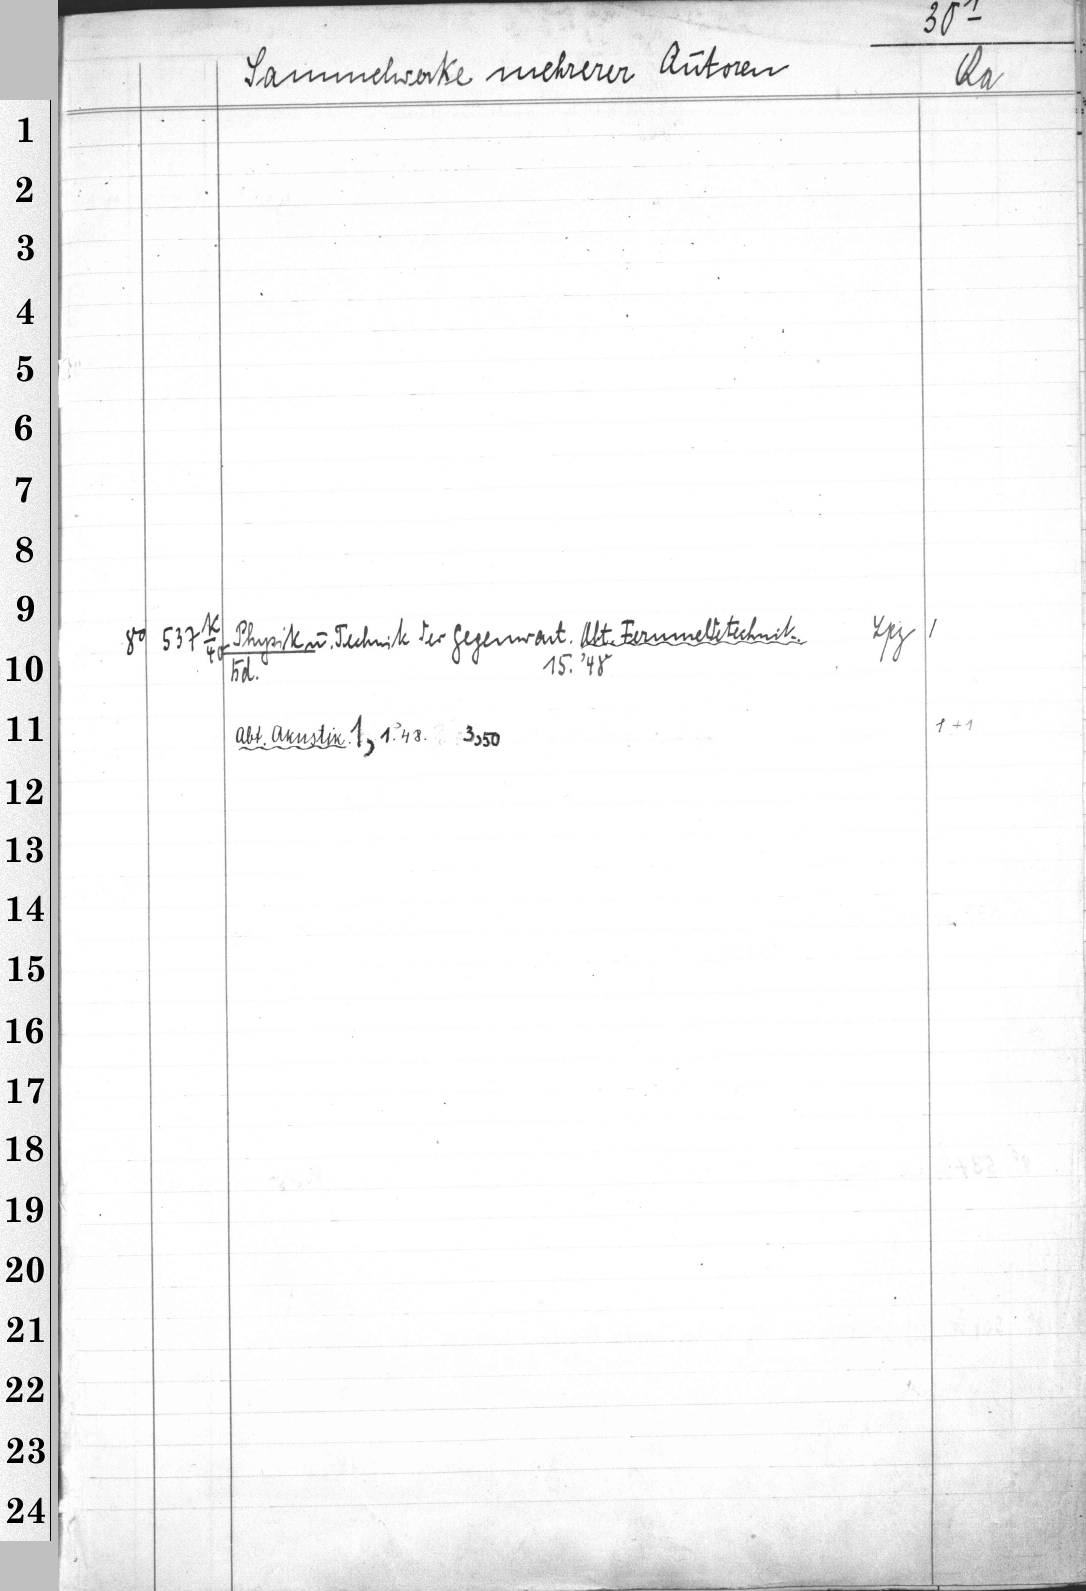 30¹
Sammelwerke mehrerer Autoren Qa
1
2
3
4
5
6
7
8
9
8° 537 K/40 Physik u. Technik der Gegenwart. Abt. Fernmeldetechnik. Lpz 1
10
Bd. 15. '48
11
Abt. Akustik. 1, 1. '48. 3,50 1+1
12
13
14
15
16
17
18
19
20
21
22
23
24